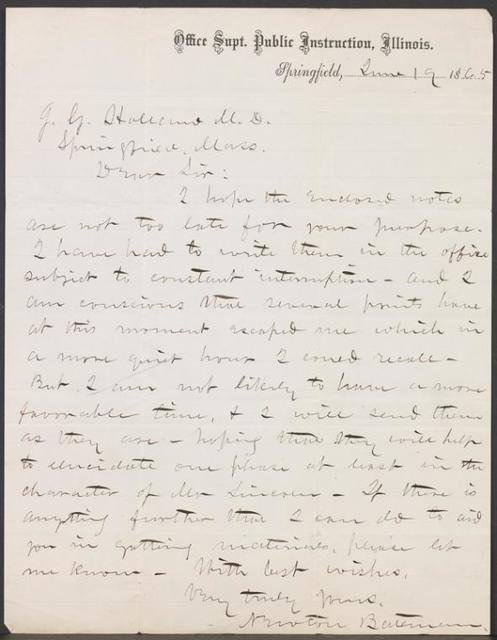 Office Supt. Public Instruction, Illinois.
Springfield, June 19 1865
J. G. Holland M. D.
Springfield, Mass.
Dear Sir:
I hope the enclosed notes
are not too late for your purpose.
I have had to write them in the office
subject to constant interruption - and I
am conscious that several points have
at this moment escaped me which in
a more quiet hour I could recall -
But I am not likely to have a more
favorable time, & I will send them
as they are - hoping that they will help
to elucidate one phase at least in the
character of Mr Lincoln - If there is
anything further that I can do to aid
you in getting materials, please let
me know - With best wishes,
Very truly yours,
Newton Bateman.